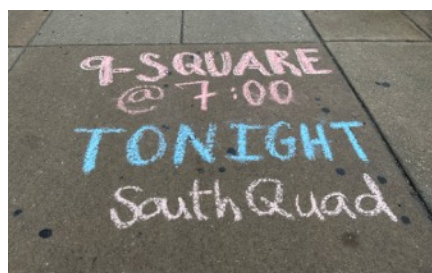 9-SQUARE
@ 7:00
TONIGHT
South Quad